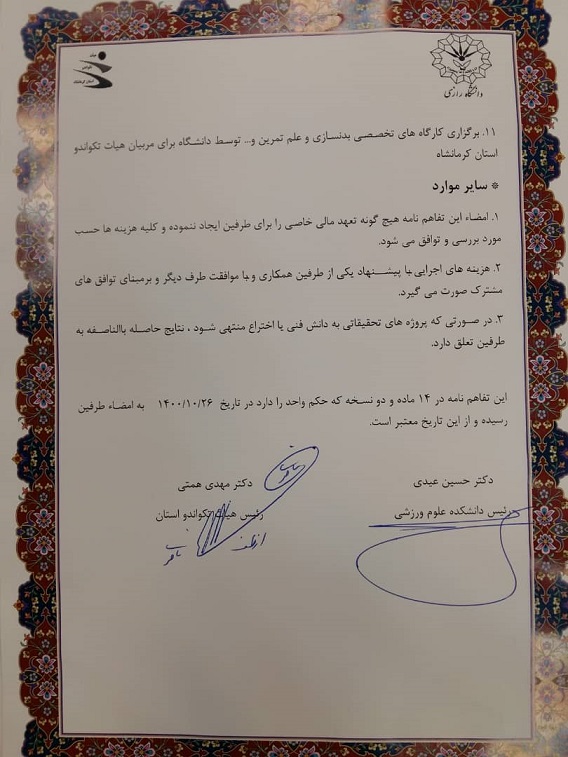 هیات تکواندو
استان کرمانشاه
دانشگاه رازی
۱۱. برگزاری کارگاه های تخصصی بدنسازی و علم تمرین و... توسط دانشگاه برای مربیان هیات تکواندو
استان کرمانشاه
* سایر موارد
۱. امضاء این تفاهم نامه هیچ گونه تعهد مالی خاصی را برای طرفین ایجاد ننموده و کلیه هزینه ها حسب
مورد بررسی و توافق می شود.
۲. هزینه های اجرایی با پیشنهاد یکی از طرفین همکاری و با موافقت طرف دیگر و برمبنای توافق های
مشترک صورت می گیرد.
۳. در صورتی که پروژه های تحقیقاتی به دانش فنی یا اختراع منتهی شود ، نتایج حاصله باالناصفه به
طرفین تعلق دارد.
این تفاهم نامه در ۱۴ ماده و دو نسخه که حکم واحد را دارد در تاریخ ۱۴۰۰/۱۰/۲۶ به امضاء طرفین
رسیده و از این تاریخ معتبر است.
دکتر حسین عبدی
دکتر مهدی همتی
رئیس دانشکده علوم ورزشی
رئیس هیات تکواندو استان